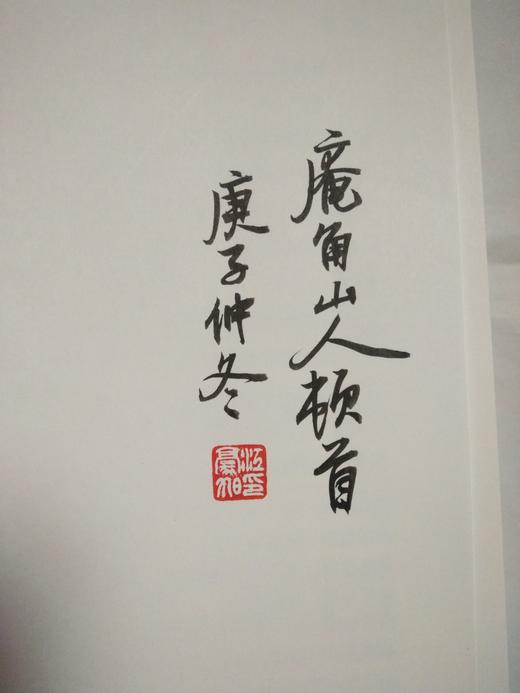 庵角山人顿首
庚子仲冬